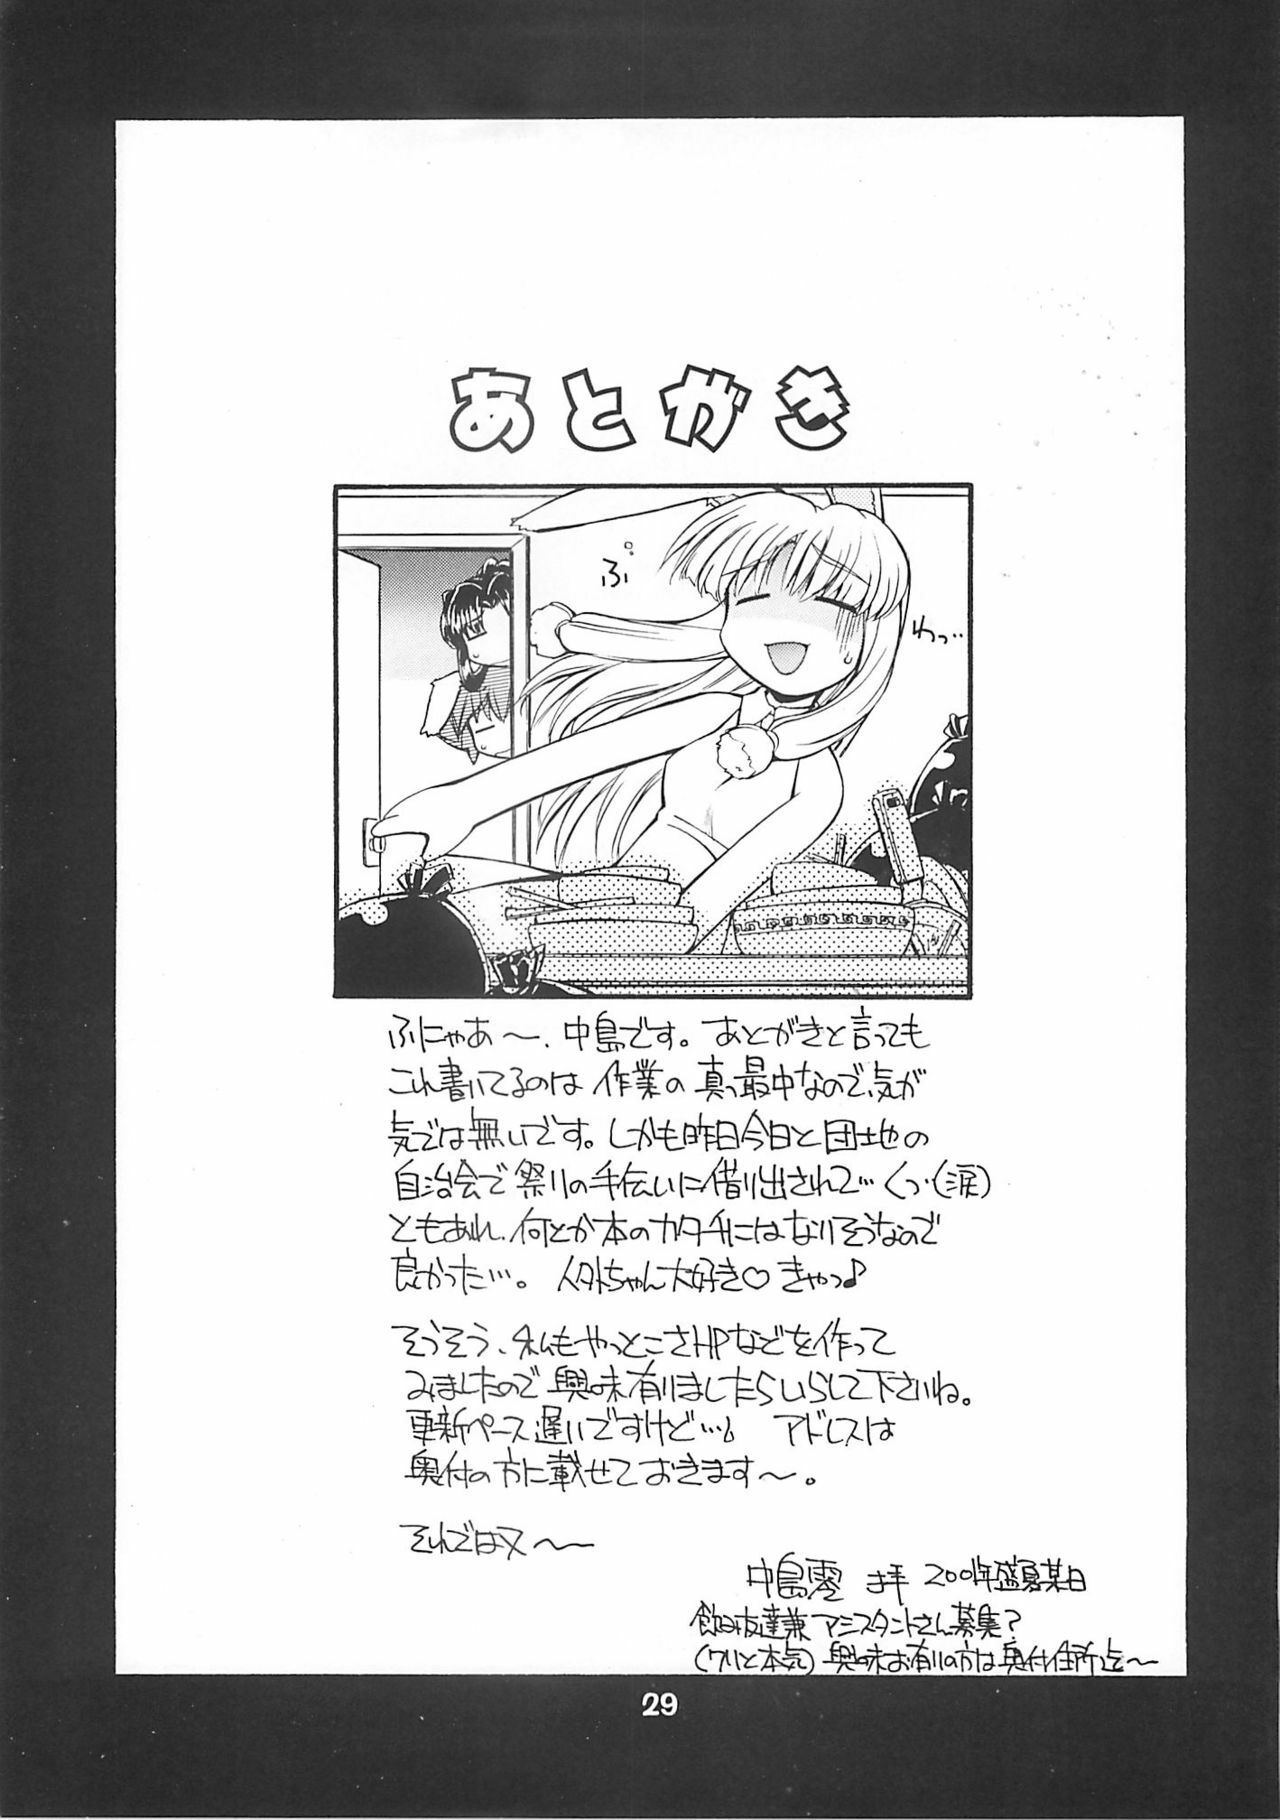 あとがき
ぷ
わっ…
ふにゃあ～、中島です。あとがきと言っても
これ書いてるのは作業の真っ最中なので、気が
気では無いです。しかも昨日今日と団地の
自治会で祭りの手伝いに借り出されて…くっ・(涙)
ともあれ、何とか本のカタチにはなりそうなので
良かった…。 大好き♡ きゃっ♪
そうそう、私もやっとこさHPなどを作って
みましたので興味有りましたらいらして下さいね。
更新ペース遅いですけど… アドレスは
奥付の方に載せておきます～。
それでは又～～
中島零 拝 2001年盛夏某日
飲み友達兼アシスタントさん募集?
(ワリと本気)興味お有りの方は奥付住所迄～
29